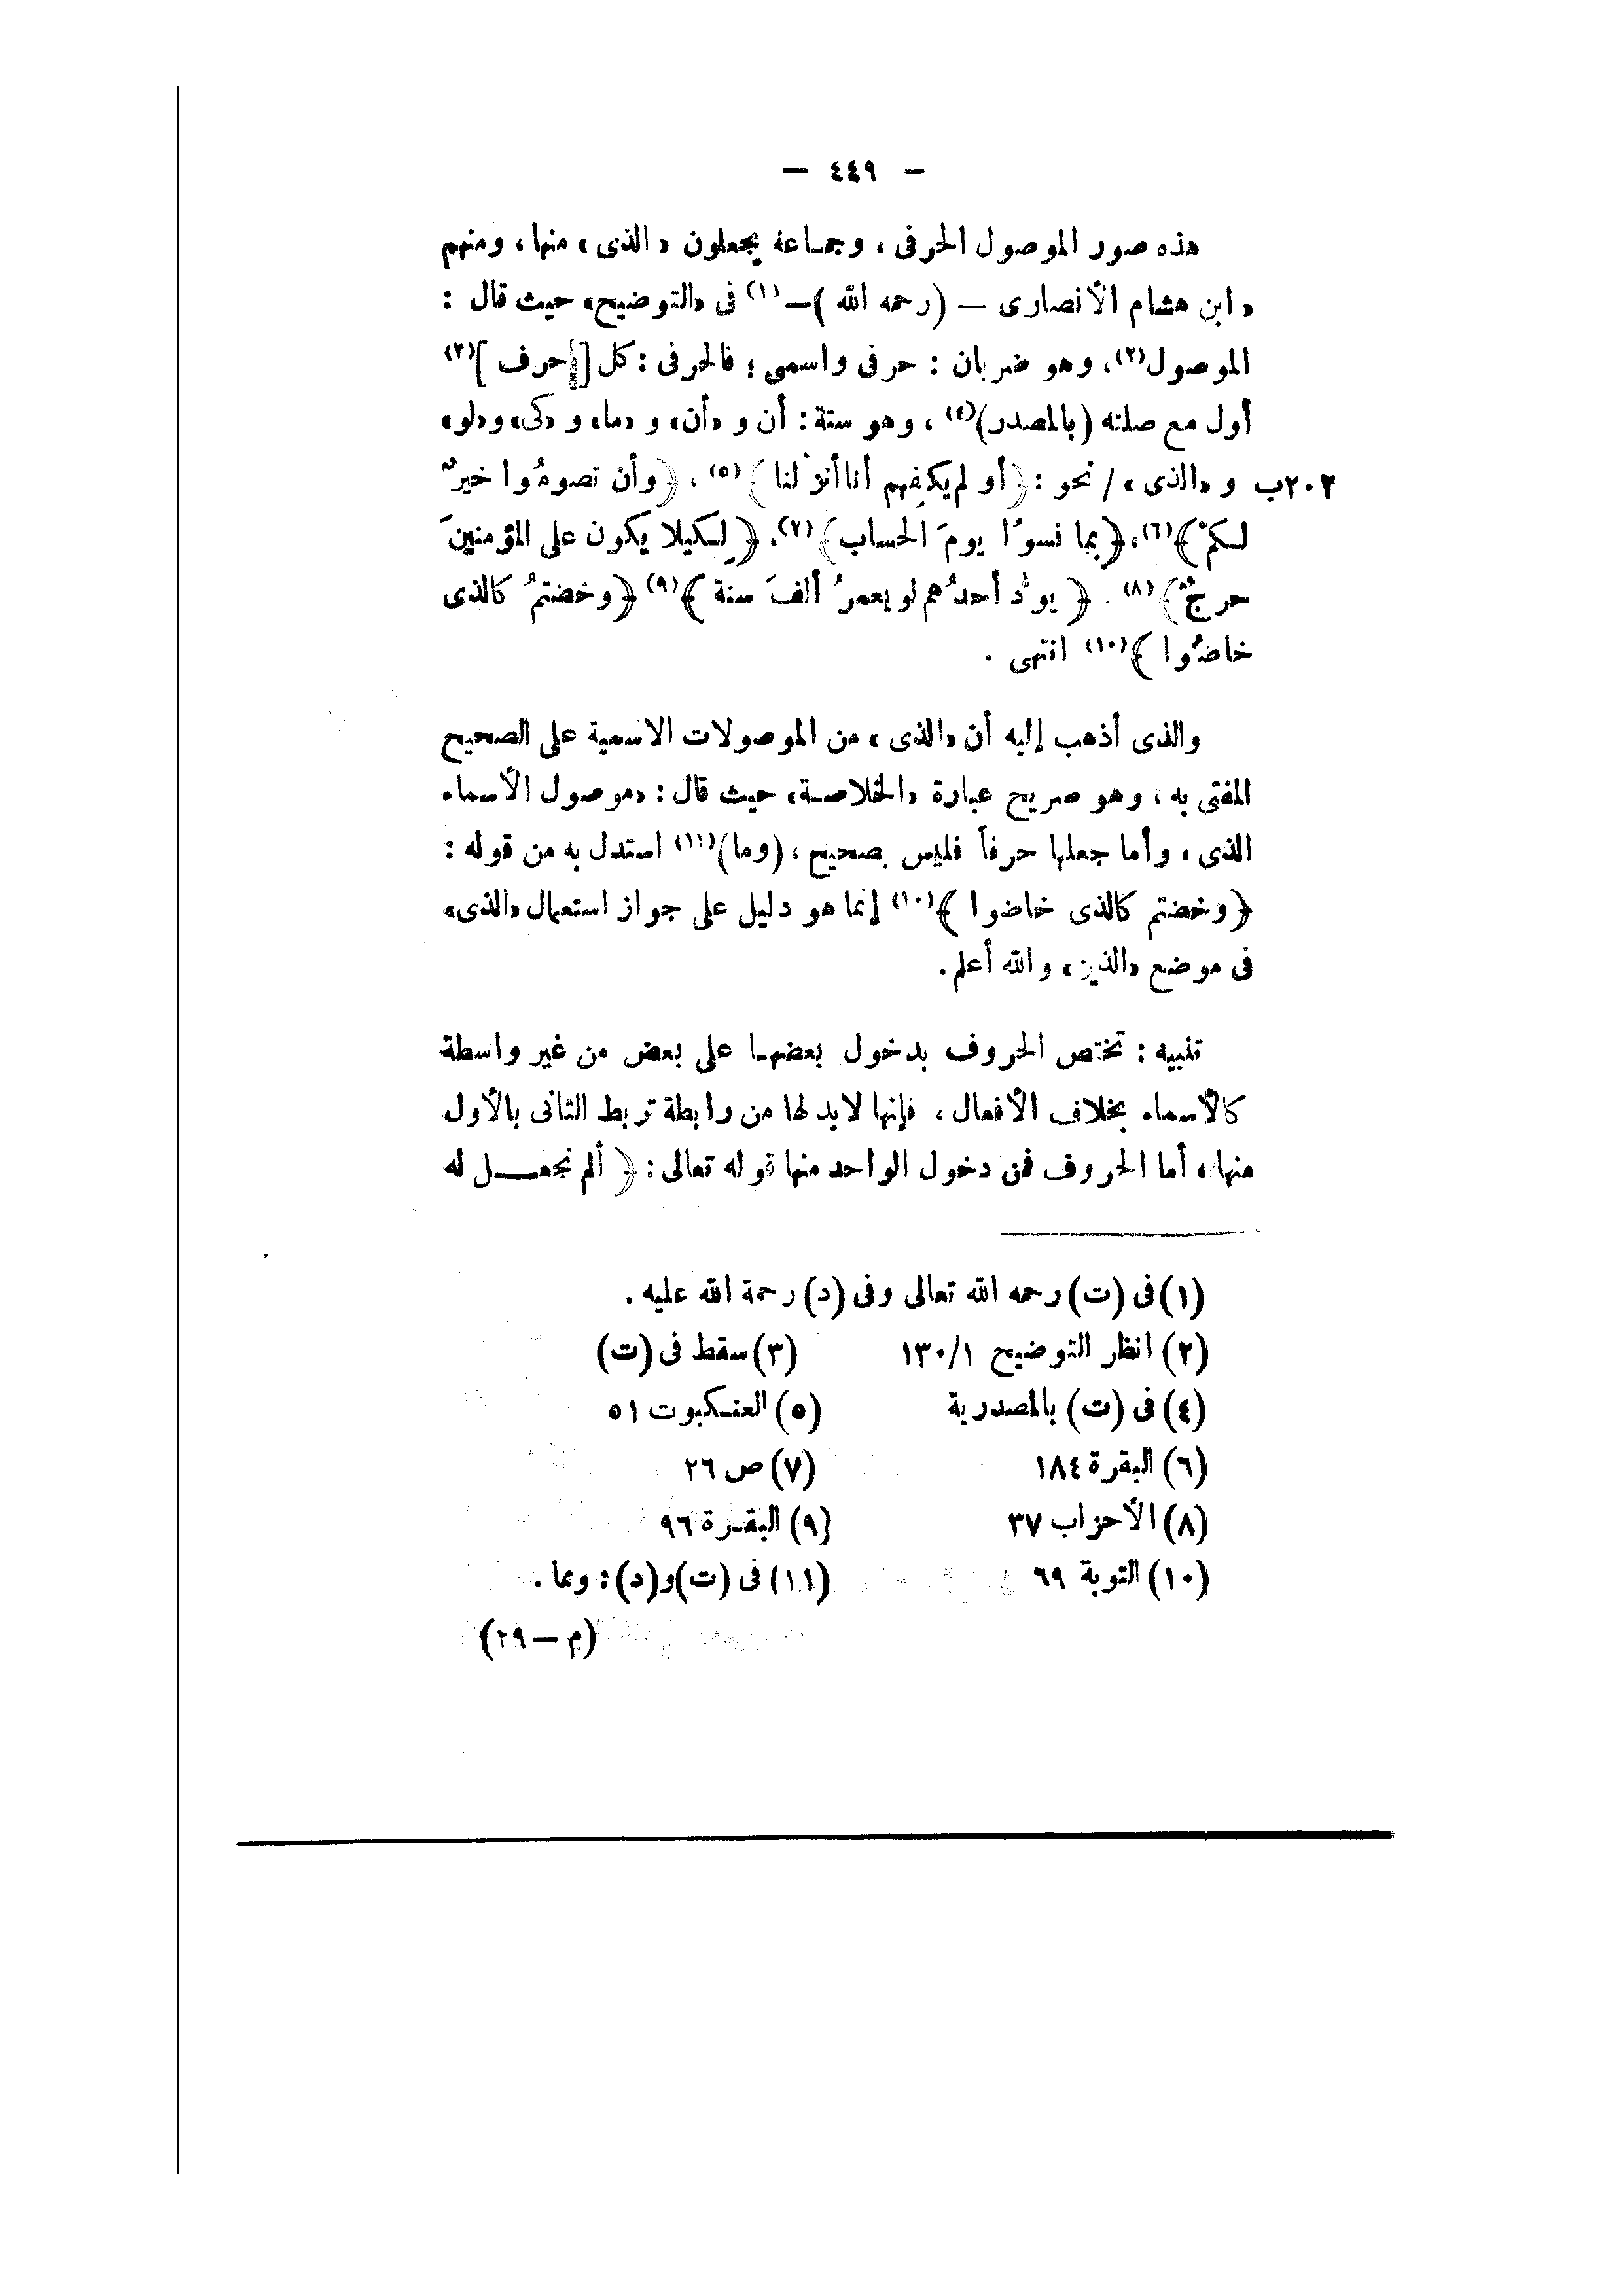 — ٤٤٩ —
هذه صور الموصول الحرفى ، وجمـاعة يجعلون « الذى » منها ، ومنهم
« ابن هشام الأنصارى — (رحمه الله )—(١) فى «التوضيح» حيث قال :
الموصول(٢) ، وهو ضربان : حرفى واسمى ؛ فالحرفى : كل [حرف](٣)
أول مع صلته (بالمصدر)(٤) ، وهو ستة : أن و «أن» و «ما» و «كى» و«لو»
٢٠٢ب و «الذى» / نحو : ﴿أو لم يكفِهم أنا أنزلنا﴾(٥) ، ﴿وأن تصومُوا خيرٌ
لـكمْ﴾(٦) ، ﴿بما نسوُا يومَ الحساب﴾(٧) ، ﴿لِـكيلا يكون على المؤمنينَ
حرجٌ﴾(٨) . ﴿يودُّ أحدُهم لو يعمرُ ألفَ سنة﴾(٩) ﴿وخضتمُ كالذى
خاضُوا﴾(١٠) انتهى .
والذى أذهب إليه أن «الذى» من الموصولات الاسمية على الصحيح
المفتى به ، وهو صريح عبارة «الخلاصـة» حيث قال : «موصول الأسماء
الذى ، وأما جعلها حرفاً فليس بصحيح ، (وما)(١١) استدل به من قوله :
﴿وخضتم كالذى خاضوا﴾(١٠) إنما هو دليل على جواز استعمال «الذى»
فى موضع «الذين» والله أعلم .
تنبيه : تختص الحروف بدخول بعضهـا على بعض من غير واسطة
كالأسماء بخلاف الأفعال ، فإنها لابد لها من رابطة تربط الثانى بالأول
منها ، أما الحروف فمن دخول الواحد منها قوله تعالى : ﴿ ألم نجعـــل له
(١) فى (ت) رحمه الله تعالى وفى (د) رحمة الله عليه .
(٢) انظر التوضيح ١٣٠/١ (٣) سقط فى (ت)
(٤) فى (ت) بالمصدرية (٥) العنـكبوت ٥١
(٦) البقرة ١٨٤ (٧) ص ٢٦
(٨) الأحزاب ٣٧ (٩) البقـرة ٩٦
(١٠) التوبة ٦٩ (١١) فى (ت) و(د) : ومما .
(م — ٢٩)